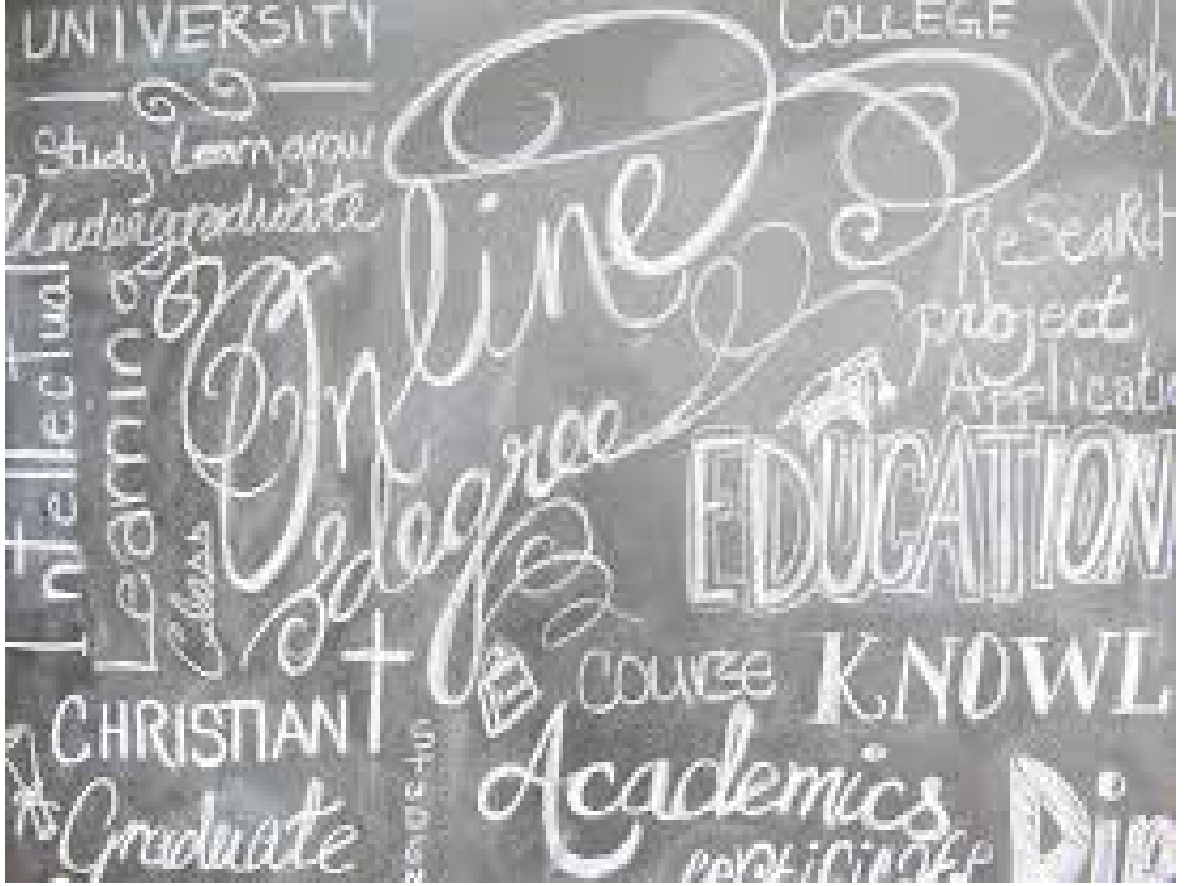 UNIVERSITY
COLLEGE
Sch
Study Learn grow
Undergraduate
Intellectual
Learning
Class
Online
degree
ReSearch
project
Applicati
EDUCATION
COURSE
KNOWL
CHRISTIAN
Graduate
Academics
certificate
Dip